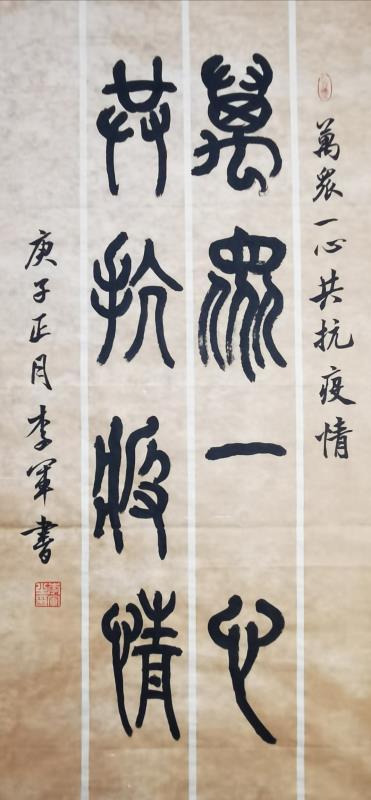 萬眾一心共抗疫情
萬眾一心
共抗疫情
庚子正月李軍書